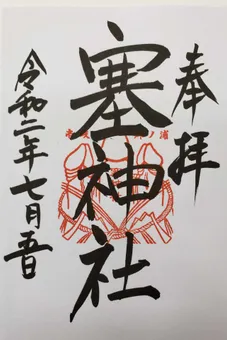 奉拝
塞神社
令和二年七月吾日